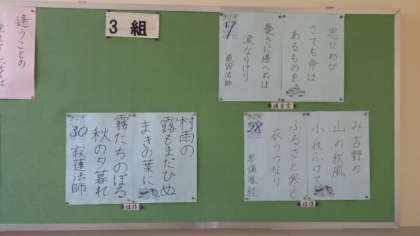 逢うことの
3組
思ひわび
さても命は
あるものを
憂きに堪へぬは
涙なりけり
道因法師
村雨の
露もまだひぬ
まきの葉に
霧たちのぼる
秋の夕暮れ
30 寂蓮法師
み吉野の
山の秋風
小夜ふけて
ふるさと寒く
衣うつなり